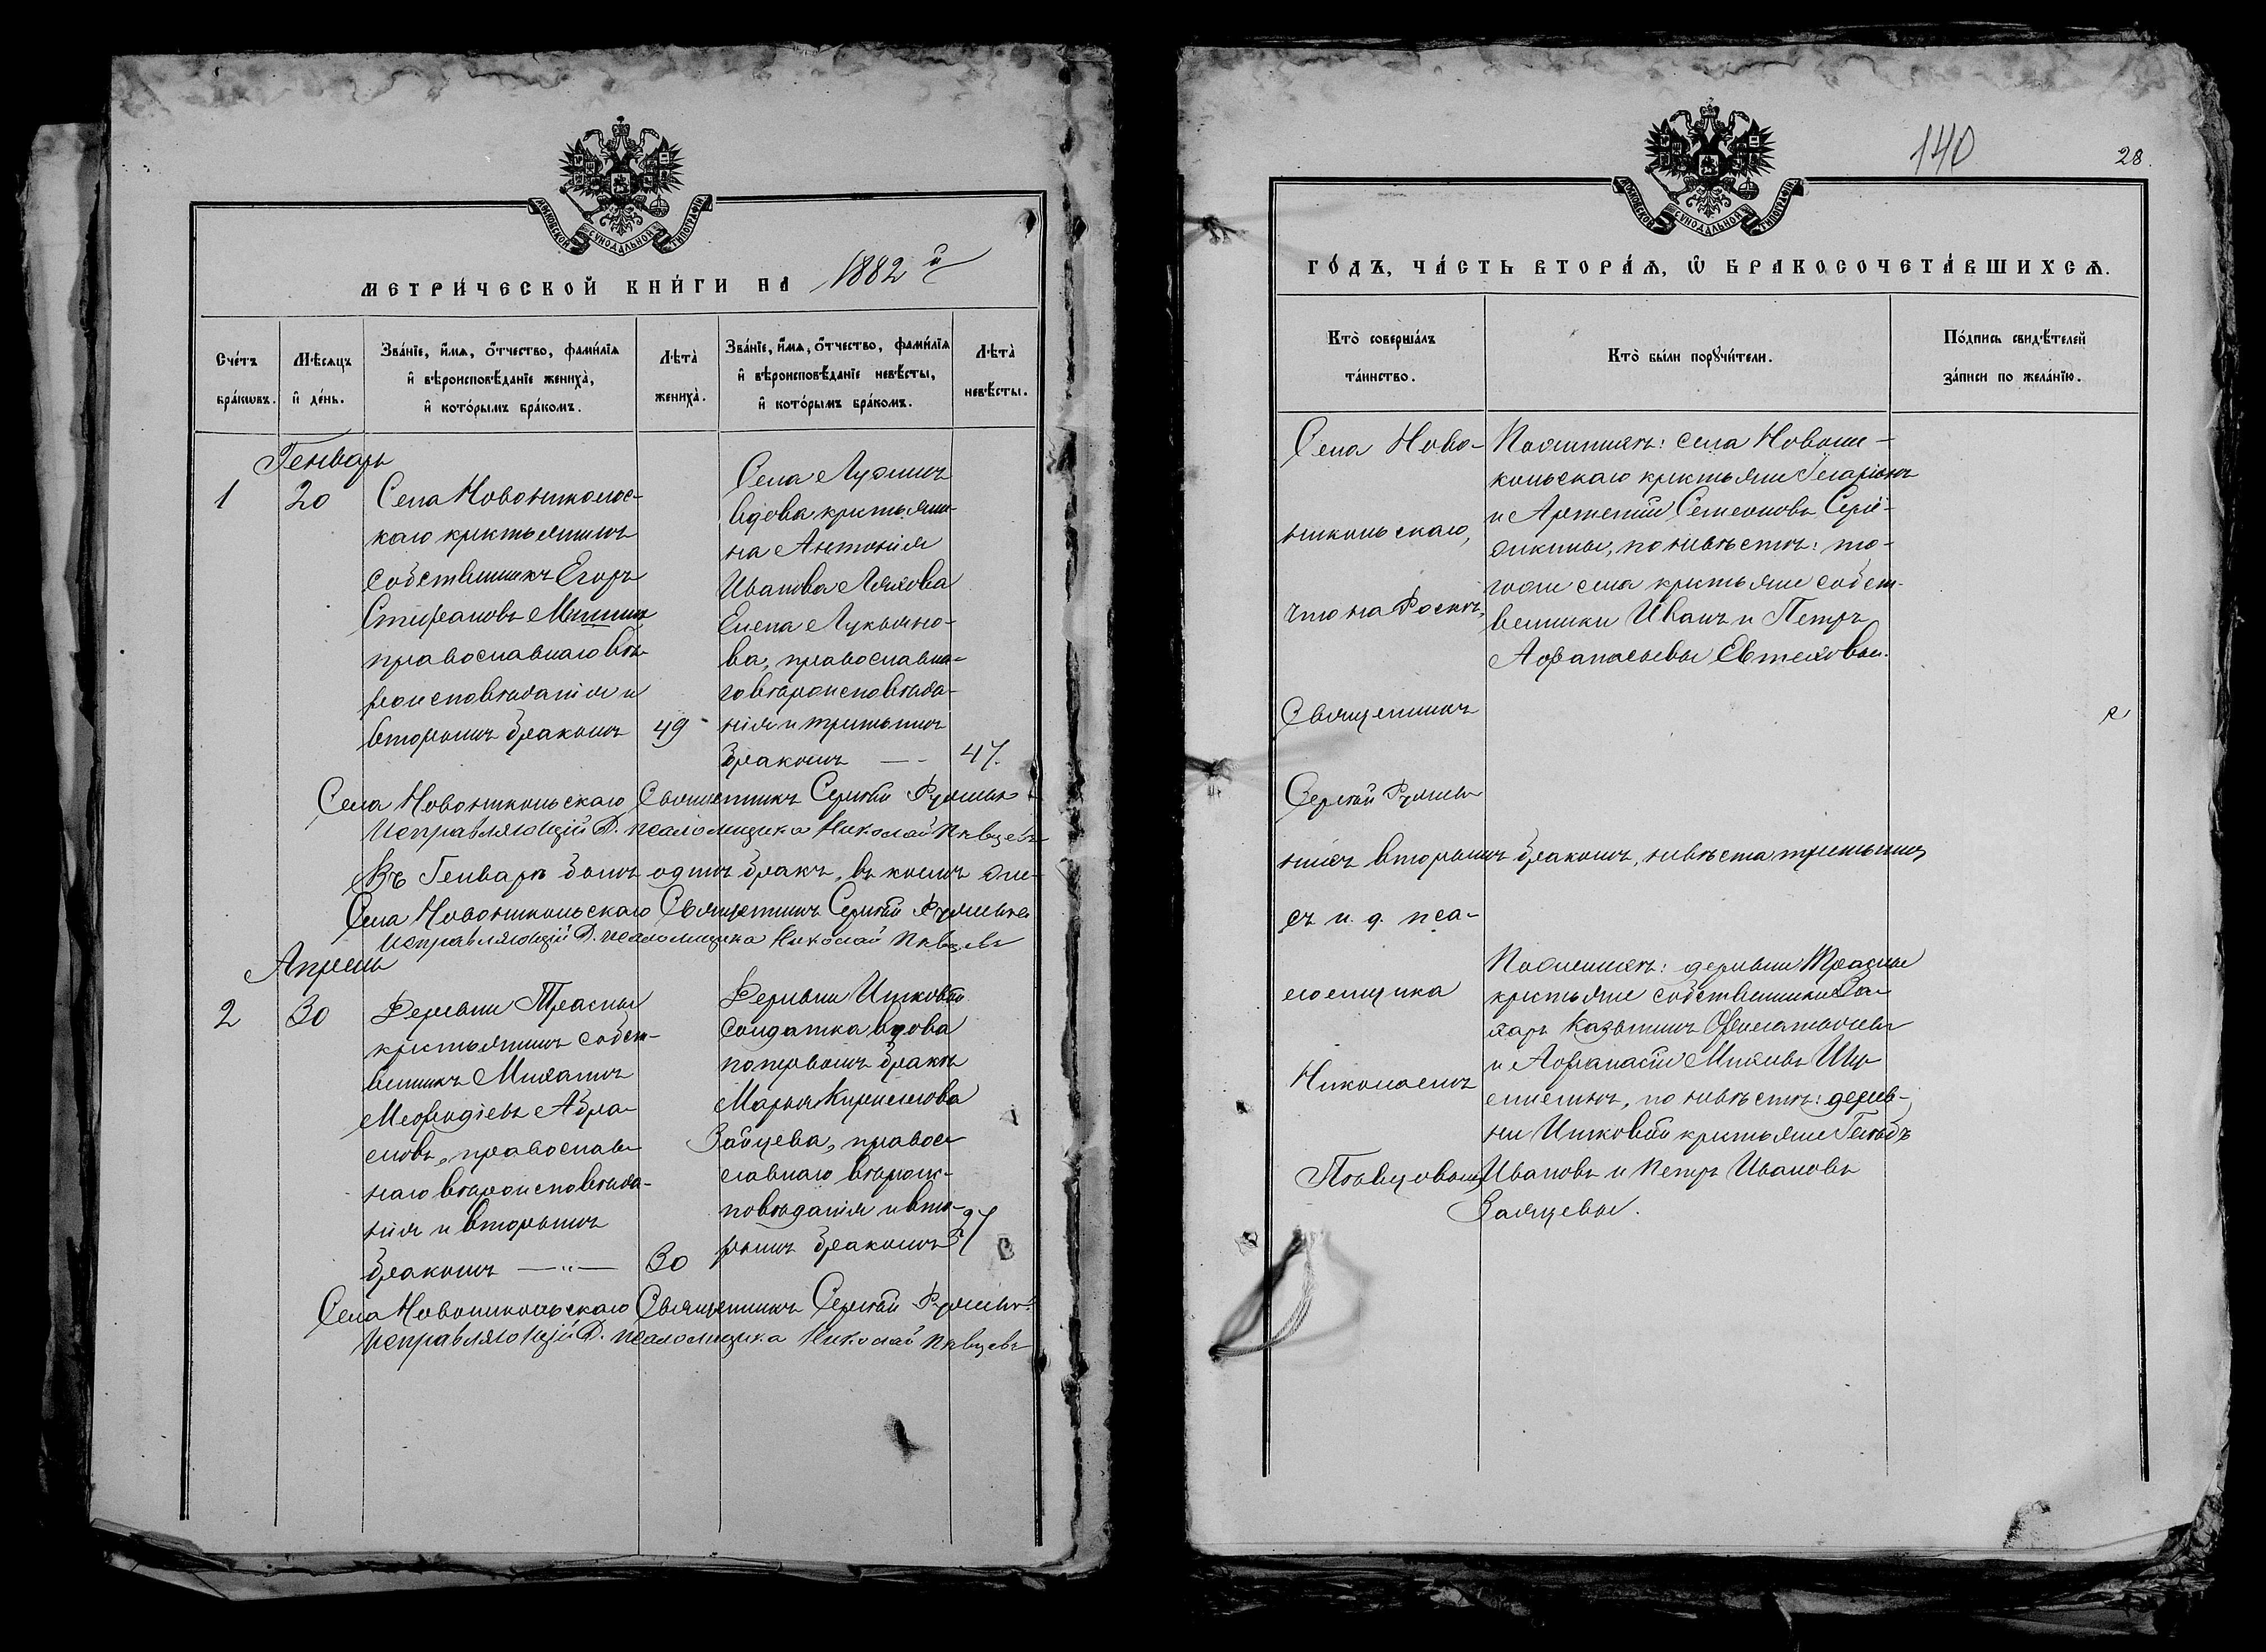 МОСКОВСКОЙ СѴНОДАЛЬНОЙ ТИПОГРАФІИ
МЕТРИ́ЧЕСКОЙ КНИ́ГИ НА 1882й
Сче́тъ бра́кѡвъ.
Мѣ́сѧцъ и҆ де́нь.
Зва́нїе, и҆́мѧ, ѻ҆́тчество, фами́лїѧ
и҆ вѣроисповѣ́данїе жениха̀,
и҆ кото́рымъ бра́комъ.
Лѣта̀ жениха̀.
Зва́нїе, и҆́мѧ, ѻ҆́тчество, фами́лїѧ
и҆ вѣроисповѣ́данїе невѣ́сты,
и҆ кото́рымъ бра́комъ.
Лѣта̀ невѣ́сты.
Генварь
1
20
Села Новоникольс-
каго крестьянинъ
собственникъ Егоръ
Стефановъ Мишинъ
православнаго вѣ-
роисповѣданія и
вторымъ бракомъ
49
Села
вдова крестьяни-
на Антонія
Иванова Ляхова
Елена Лукьяно-
ва, православна-
го вѣроисповѣда-
нія и третьимъ
бракомъ — -
47.
Села Новоникольскаго Священникъ Сергѣй Румян
Исправляющій Д. псаломщика Николай Пѣвцевъ
Въ Генварѣ былъ одинъ бракъ, въ коемъ же-
Села Новоникольскаго Священникъ Сергѣй Румянц
Исправляющій Д. псаломщика Николай Пѣвцевъ
Апрель
2
30
Деревни
крестьянинъ собст-
венникъ Михаилъ
Меѳодіевъ Абра-
мовъ, православ-
наго вѣроисповѣда-
нія и вторымъ
бракомъ — „ —
30
Деревни
солдатка вдова
по первомъ бракѣ
Марья Кириллова
Зайцева, правос-
лавнаго вѣроис-
повѣданія и вто-
рымъ бракомъ
27
Села Новоникольскаго Священникъ Сергѣй Румянц
Исправляющій Д. псаломщика Николай Пѣвцевъ
140
28.
МОСКОВСКОЙ СѴНОДАЛЬНОЙ ТИПОГРАФІИ
ГО́ДЪ, ЧА́СТЬ ВТОРА́Ѧ, Ѡ҆ БРАКОСОЧЕТА́ВШИХСѦ.
Кто̀ соверша́лъ
та́инство.
Кто̀ бы́ли порꙋчи́тели.
По́дпись свидѣ́телей
за́писи по жела́нїю.
Села Ново-
никольскаго,
что на
Священникъ
Сергѣй Румян
По женихѣ: села Новони-
кольскаго крестьяне Иларіонъ
и Артемій Семеновы
по невѣстѣ: то-
гоже села крестьяне собст-
венники Иванъ и Петръ
Аѳанасьевы
нихъ вторымъ бракомъ, невѣста третьимъ
съ и. д. пса-
ломщика
Николаемъ
Пѣвцовымъ
По женихѣ: деревни
крестьяне собственники За-
харъ
и Аѳанасій
по невѣстѣ: дерев-
ни крестьяне Глебъ
Ивановъ и Петръ Ивановъ
Заицевы.